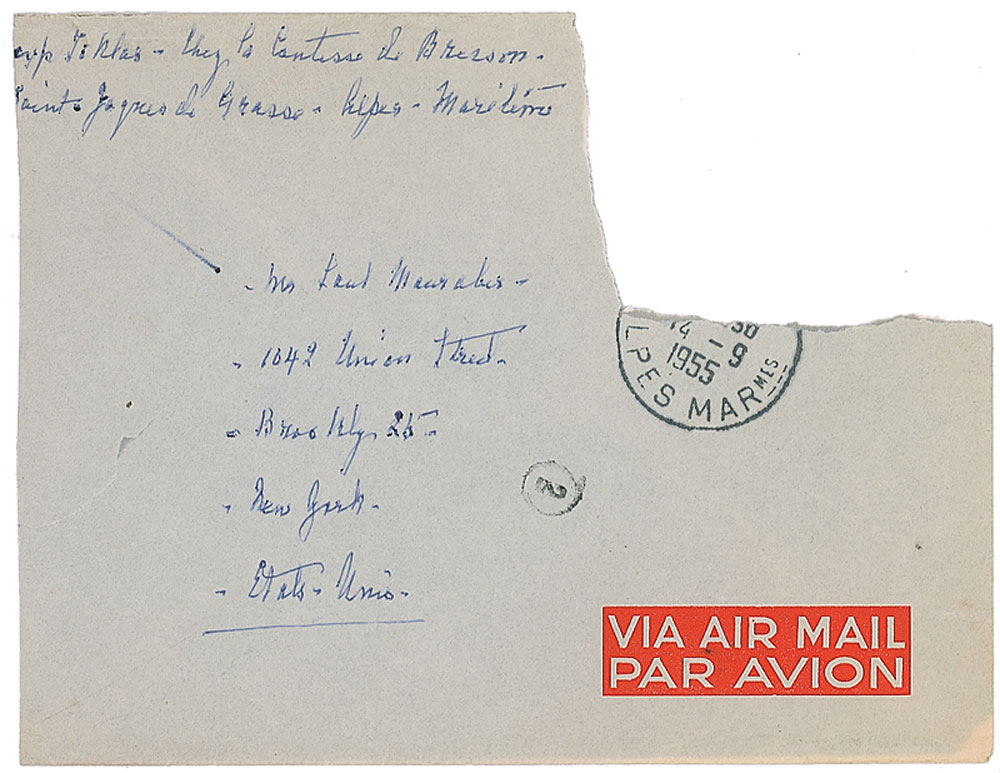 exp Toklas - Chez la Comtesse de Bresson -
Saint-Jaques de Grasse - Alpes - Maritimes
- Mr Paul
- 1042 Union Street -
- Brooklyn 25 -
- New York -
- Etats - Unis -
14 - 30
1955 - 9
LPES MARMES
2
VIA AIR MAIL
PAR AVION